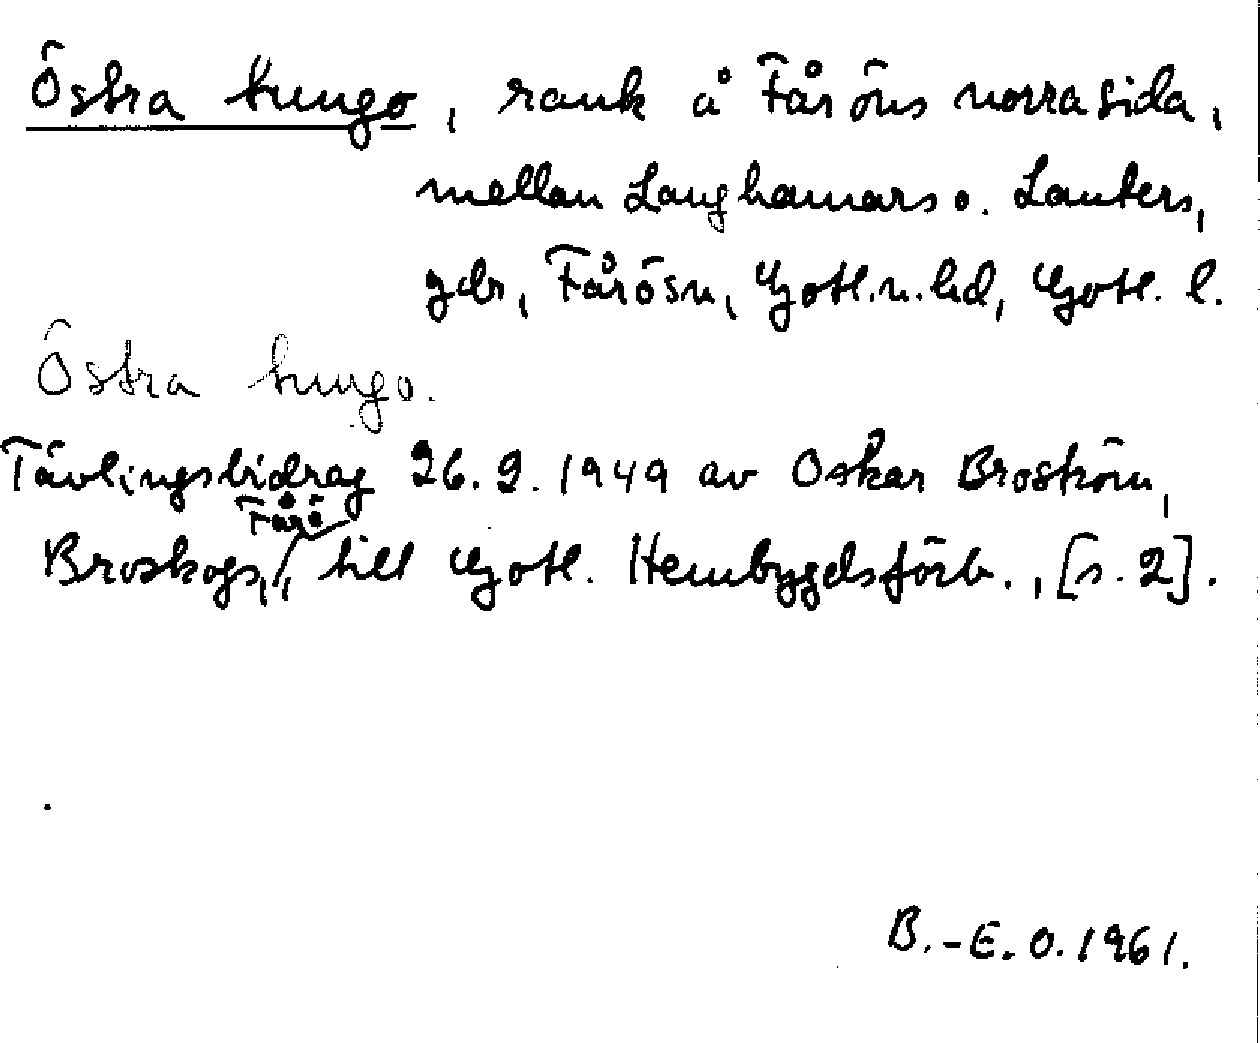 Östra hungo, rauk å Fåröns norra sida,
mellan Langhamars o. Lauters,
gdr, Fårö sn, Gotl. n. hd, Gotl. l.
Östra hungo.
Tävlingsbidrag 26.9.1949 av Oskar Broström,
Broskogs, Fårö, till Gotl. Hembygdsförb., [s. 2].
B.-E. O. 1961.